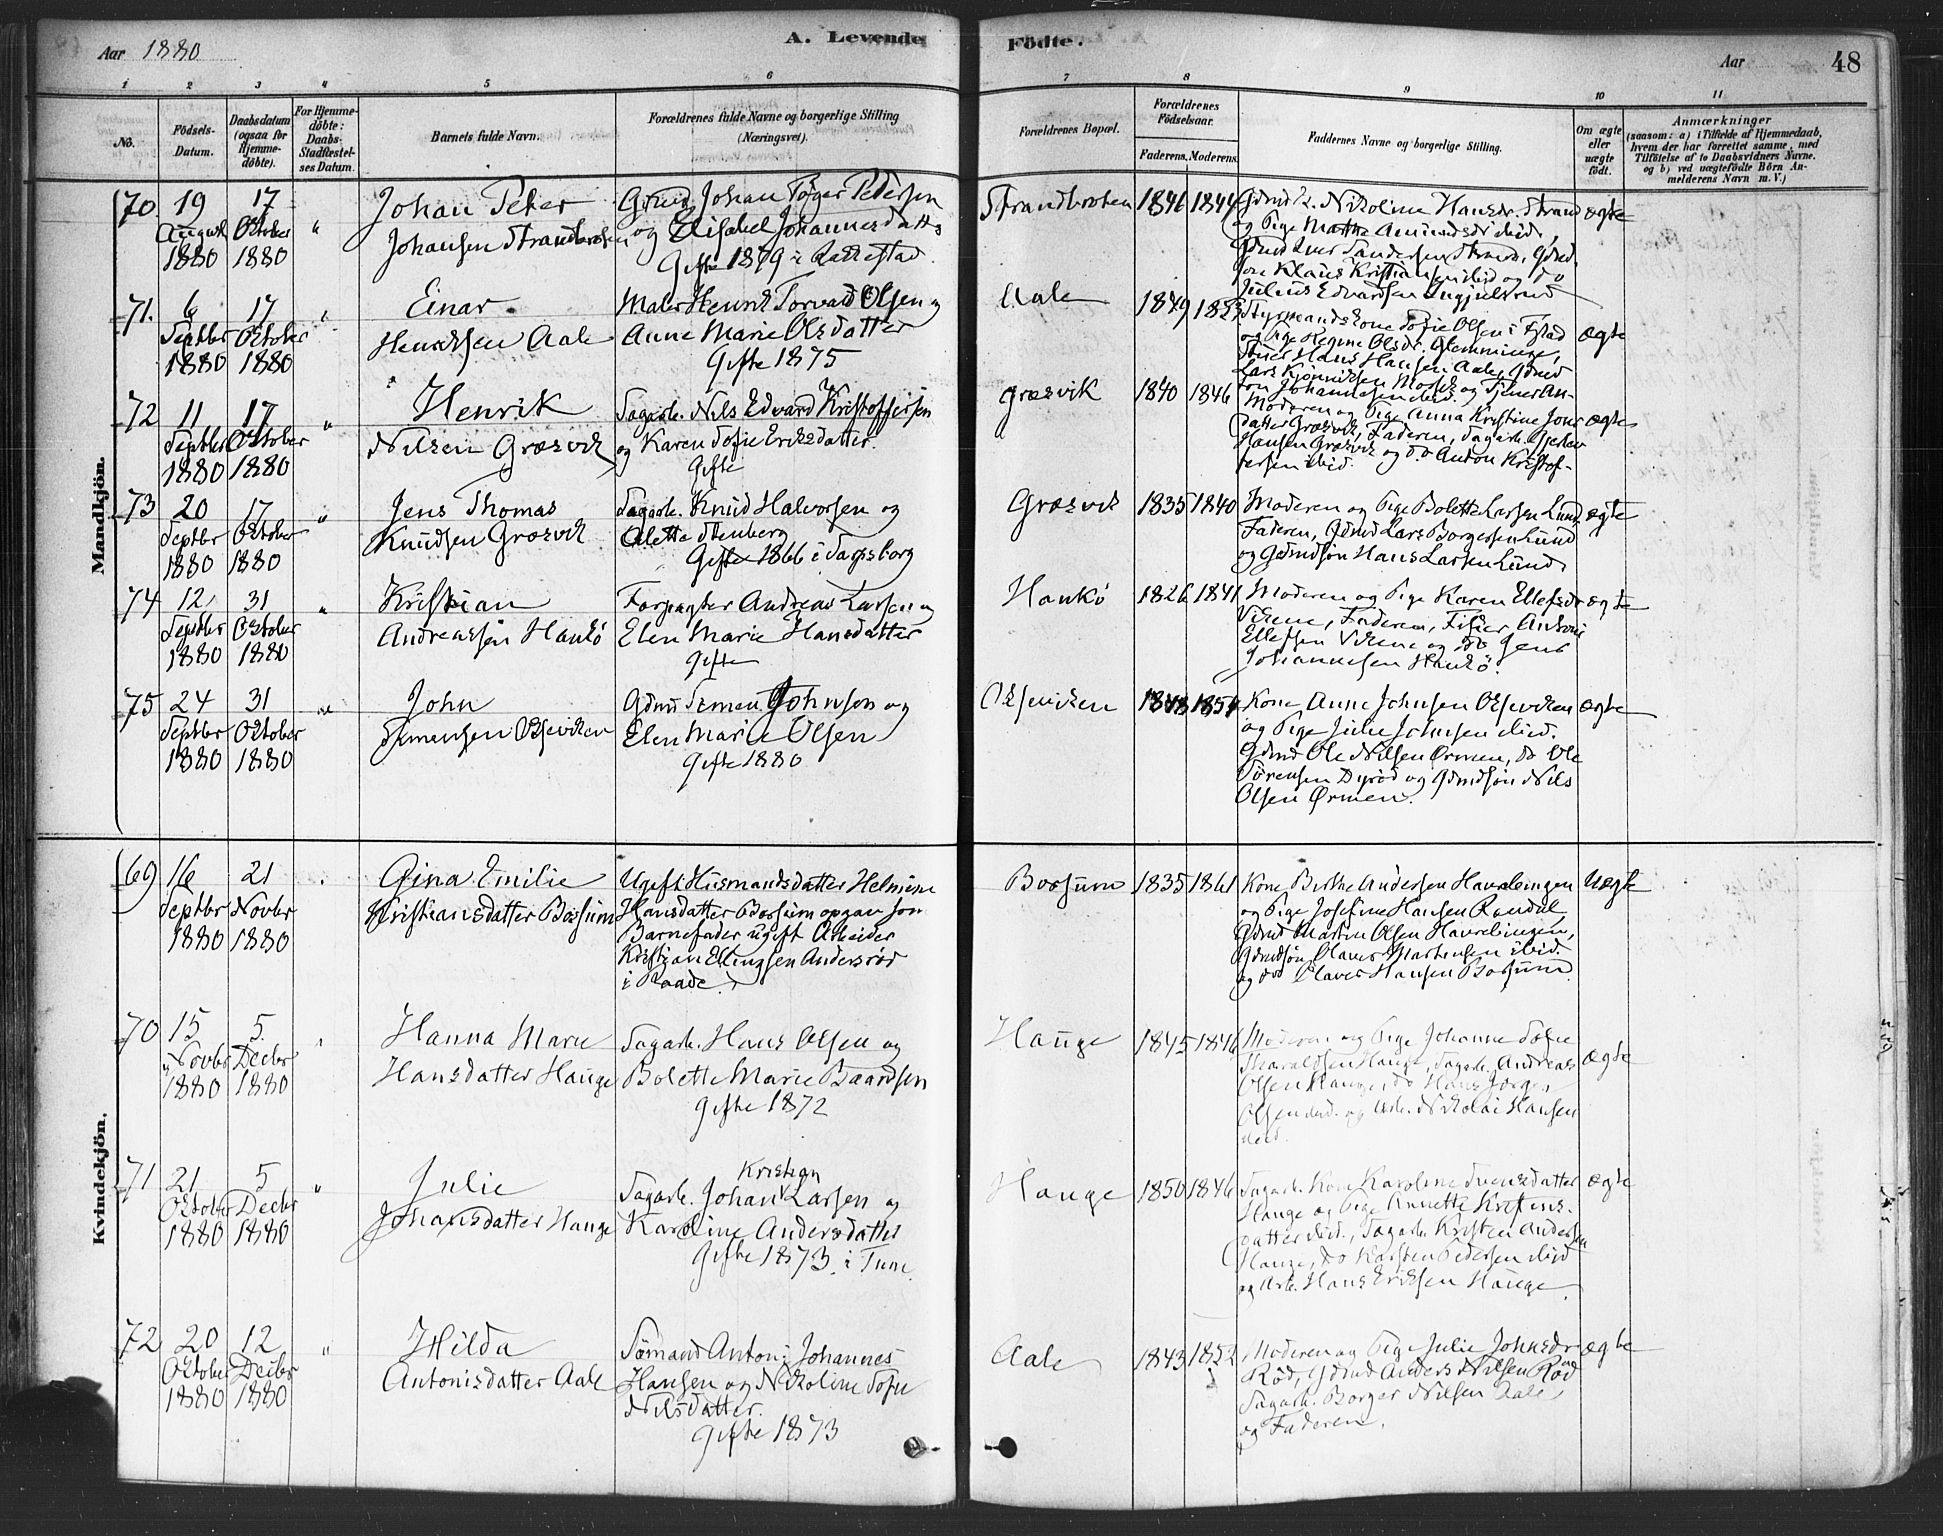 Aar 1880
A. Levende
Födte.
Aar
48
1 2 3 4 5 6 7 8 9 10 11
No.
Födsels-
Datum.
Daabsdatum
(ogsaa for
Hjemme-
döbte).
For Hjemme-
döbte:
Daabs-
Stadfæstel-
ses Datum.
Barnets fulde Navn.
Forældrenes fulde Navne og borgerlige Stilling
(Næringsvei).
Forældrenes Bopæl.
Forældrenes
Födselsaar.
Faderens. Moderens.
Faddernes Navne og borgerlige Stilling.
Om ægte
eller
uægte
födt.
Anmærkninger
(saasom: a) i Tilfælde af Hjemmedaab,
hvem der har forrettet samme, med
Tilföielse af to Daabsvidners Navne.
og b) ved uægtefödte Börn An-
melderens Navn m. V.)
Mandkjön.
70. 19
August
1880
17
Oktober
1880
"
Johan Peter
Johansen Strandbroten
Johan Töger Pedersen
og Elisabet Johannesdatter
Gifte 1879 i Rakkestad
Strandbroten
1846 1844
Nikoline Hansdr. Strand
og Pige Marthe ibid,
Gdmd Iver Sandersen Strand, Gdmd.
Klaus Kristiansen ibid og do
Julius Edvardsen
ægte
71. 6
Septbr
1880
17
Oktober
1880
"
Einar
Henriksen Aale
Maler Henrik Torvald Olsen og
Anne Marie Olsdatter
Gifte 1875
Aale
1849 1853
Styrmandskone Sofie Olsen i
og Pige Regine Olsdr. Glemminge,
Hans Hansen Aale, Gdmd
Lars
Johannesen ibid. og Tjener An-
ægte
72 11
Septbr
1880
17
Oktober
1880
"
Henrik
Nilsen Græsvik
Sagarb. Nils Edvard Kristoffersen
og Karen Sofie Eriksdatter.
Gifte
Græsvik
1840 1846
Moderen og Pige Anna Kristine Jons
datter Græsvik, Faderen, Sagarb.
Hansen Græsvik og do Anton Kristof-
fersen ibid.
ægte
73 20
Septbr
1880
17
Oktober
1880
"
Jens Thomas
Knudsen Græsvik
Sagarb. Knud Halvorsen og
Olette Stenberg
Gifte 1866 i Sarpsborg
Græsvik
1835 1840
Moderen og Pige Bolette Larsen Lund,
Faderen, Gdmd Lars Borgersen Lund
og Gdmdsön Hans Larsen Lund.
ægte
74 12
Septbr
1880
31
Oktober
1880
"
Kristian
Andreassen Hankö
Forpagter Andreas Larsen og
Elen Marie Hansdatter
Gifte
Hankö
1826 1841
Moderen og Pige Karen Ellefsdr
Vikene, Faderen, Fisker
Ellefsen Vikene og do Jens
Johannesen Hankö
ægte
75 24
Septbr
1880
31
Oktober
1880
"
John
Simensen Oksviken
Gdmd Simen Johnsen og
Elen Marie Olsen
Gifte 1880
Oksviken
1848 1854
Kone Anne Johnsen Oksviken
og Pige Julie Johnsen ibid.
Gdmd Ole Nilsen Ørmen, do Ole
Sörensen Dyröd og Gdmdsön Nils
Olsen Ørmen.
ægte
Kvindekjön.
69 16
Septbr
1880
21
Novbr
1880
Gina Emilie
Kristiansdatter Bossum
Ugift Husmandsdatter Helmine
Hansdatter Bossum opgav som
Barnefader ugift Arbeider
Kristian Ellingsen Andersröd
i Raade.
Bossum
1835 1861
Kone Birthe Andersen Haurebingen
og Pige Josefine Hansen Randal
Gdmd Martin Olsen Haurebingen,
Gdmdsön Olaus Martinsen ibid.
og do Olaves Hansen Bossum
Uægte
70 15
Novbr
1880
5.
Decbr
1880
"
Hanna Marie
Hansdatter Hauge
Sagarb. Hans Olsen og
Bolette Marie Baardsen
Gifte 1872
Hauge
1845 1846
Moderen og Pige Johanne Sofie
Haraldsen Hauge, Sagarb. Andreas
Olsen Hauge, do Hans Jörgen
Olsen ibid. og Arb. Nikolai Hansen
ibid.
ægte
71 21
Oktober
1880
5
Decbr
1880
"
Julie
Johansdatter Hauge
Kristian
Sagarb. Johan Larsen og
Karoline Andersdatter
Gifte 1873 i Tune
Hauge
1850 1846
Sagarb. Kone Karoline Svensdatter
Hauge og Pige Annette Kristens-
datter ibid., Sagarb. Kristen Andersen
Hauge, do Karsten Pedersen ibid
og Arb. Hans Eriksen Hauge.
ægte
72 20
Oktober
1880
12
Decbr
1880
"
Hilda
Antonisdatter Aale
Sömand Antoni Johannes
Hansen og Nikoline Sofie
Nilsdatter.
Gifte 1873
Aale
1843 1852
Moderen og Pige Julie Johnsdr
Röd, Gdmd Anders Nilsen Röd
Sagarb. Borger Nilsen Aale
og Faderen.
ægte